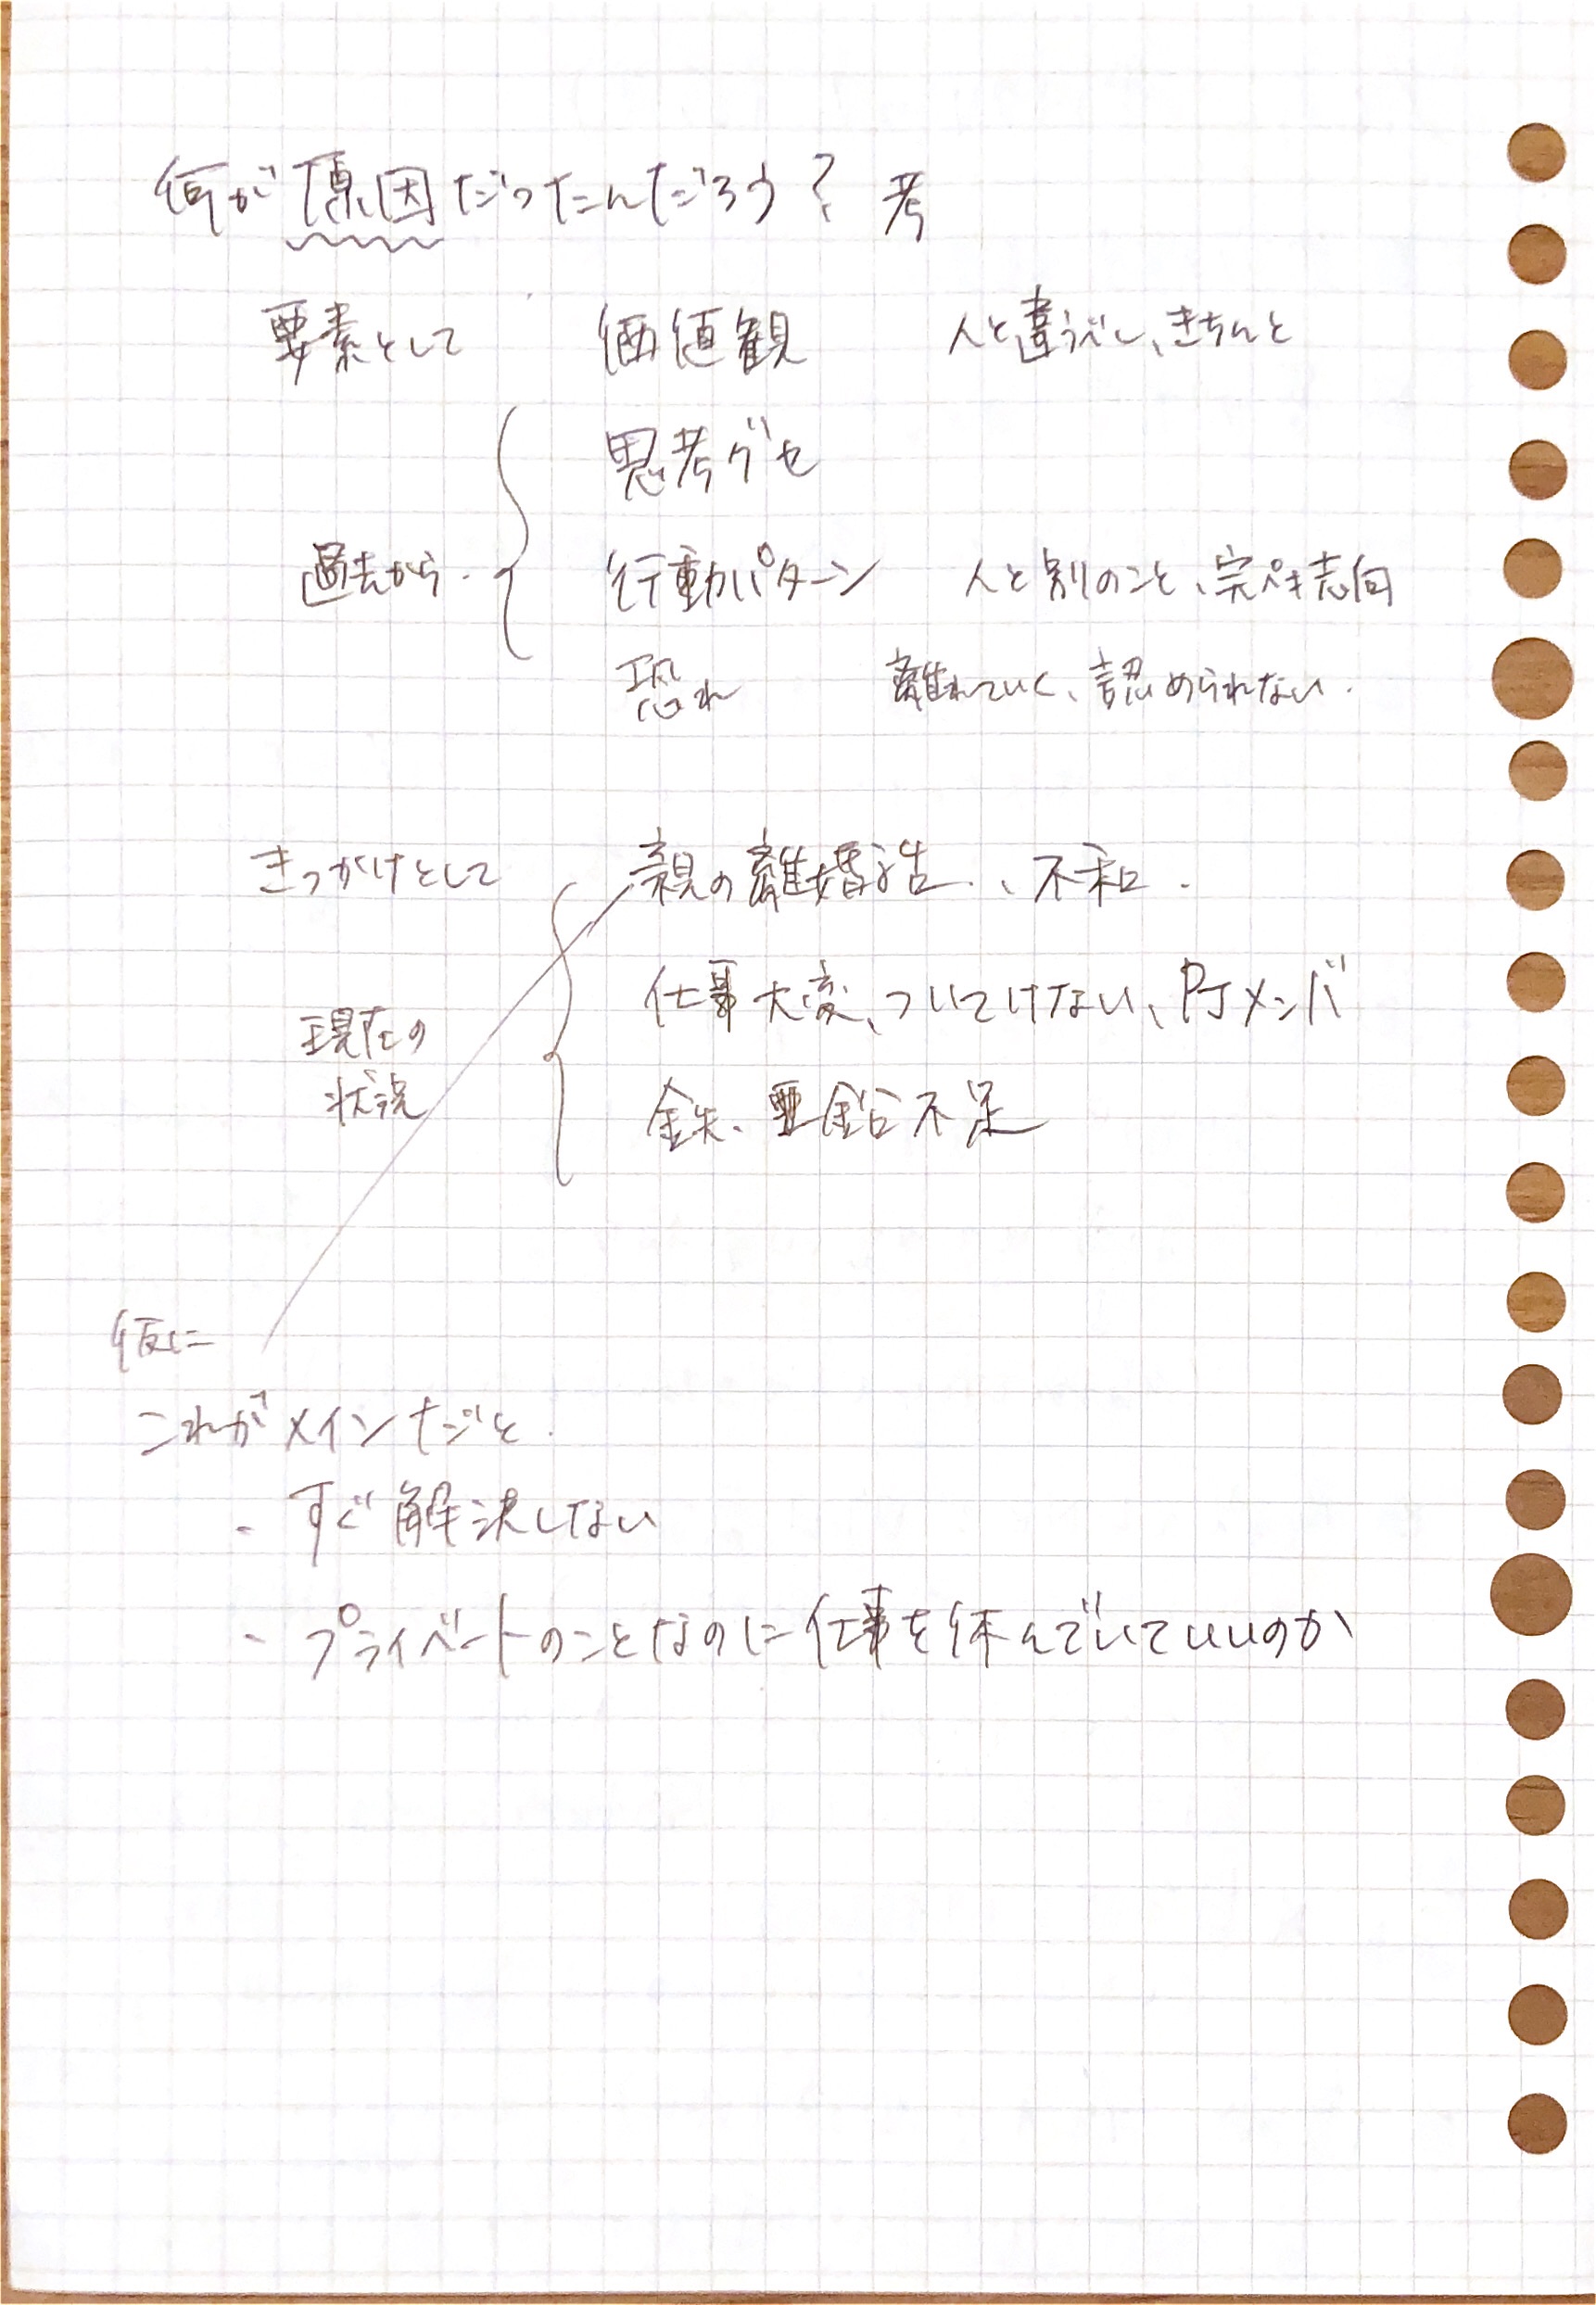 何が原因だったんだろう? 考
要素として 価値観 人と違うべし、きちんと
思考グセ
過去から 行動パターン 人と別のこと、完ペキ志向
恐れ 離れていく、認められない.
きっかけとして 親の離婚話、不和.
仕事大変、ついてけない、PJメンバ
現在の
状況 鉄、亜鉛不足
仮に
これがメインだと
・すぐ解決しない
・プライベートのことなのに仕事を休んでいていいのか